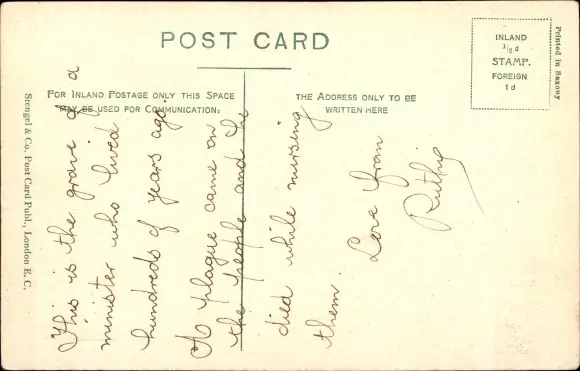 POST CARD
FOR INLAND POSTAGE ONLY THIS SPACE
MAY BE USED FOR COMMUNICATION:
THE ADDRESS ONLY TO BE
WRITTEN HERE
INLAND
½d
STAMP.
FOREIGN
1d
Printed in Saxony
Stengel & Co, Post Card Publ., London E. C.
This is the grave of a
minister who lived
hundreds of years ago.
A plague came on
the people and he
died while nursing
them.
Love from
Ruthy